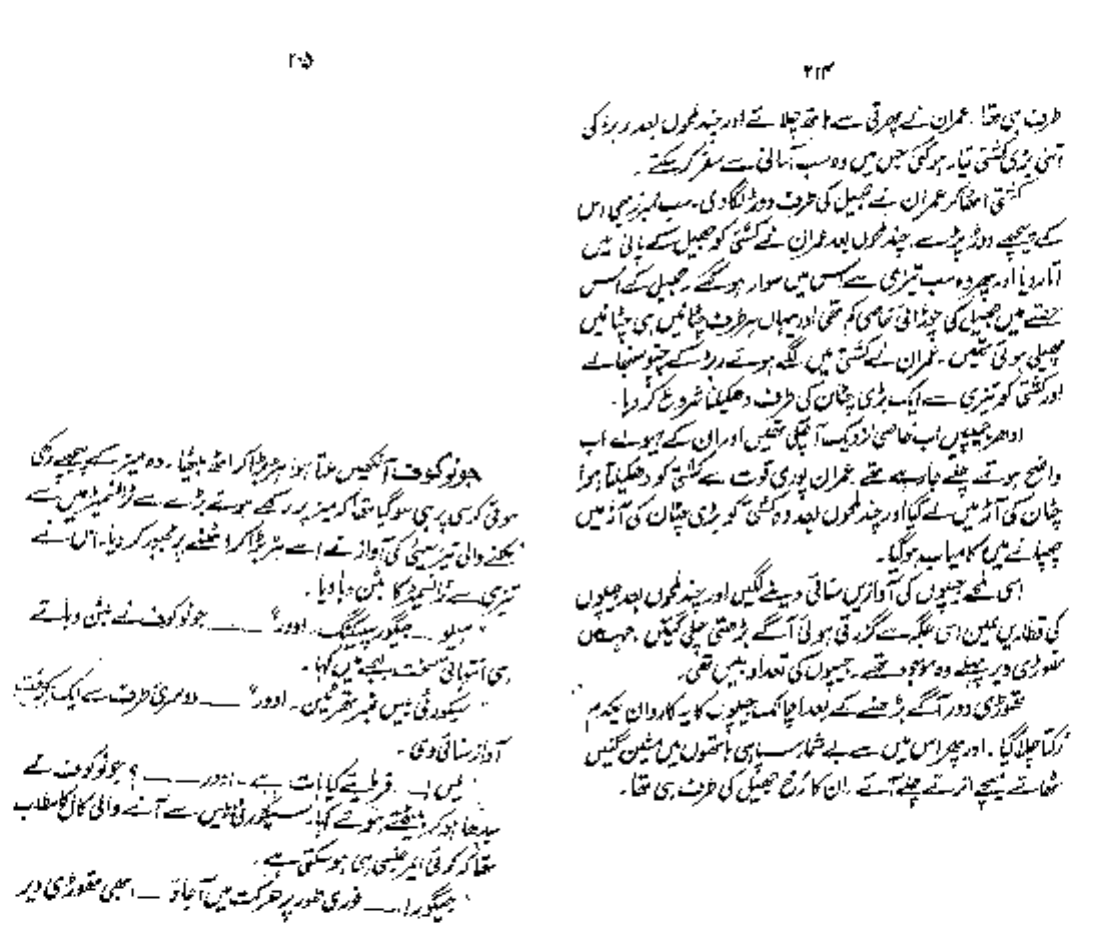 ۲۱۴
طرف ہی تھا۔ عمران نے پھرتی سے ہاتھ چلائے اور چند لمحوں بعد ربڑ کی
اتنی بڑی کشتی تیار ہو گئی جس میں وہ سب آسانی سے سفر کر سکتے۔
کشتی اٹھا کر عمران نے جھیل کی طرف دوڑ لگا دی۔ سب ممبرز بھی اس
کے پیچھے دوڑ پڑے۔ چند لمحوں بعد عمران نے کشتی کو جھیل کے پانی میں
اتار دیا اور پھر وہ سب تیزی سے اس میں سوار ہو گئے۔ جھیل کے اس
حصے میں جھیل کی چوڑائی خاصی کم تھی اور یہاں ہر طرف چٹانیں ہی چٹانیں
پھیلی ہوئی تھیں۔ عمران نے کشتی میں لگے ہوئے ربڑ کے چپو سنبھالے
اور کشتی کو تیزی سے ایک بڑی چٹان کی طرف دھکیلنا شروع کر دیا۔
ادھر جیپیں اب خاصی نزدیک آ چکی تھیں اور ان کے ہیولے اب
واضح ہوتے چلے جا رہے تھے۔ عمران پوری قوت سے کشتی کو دھکیلتا ہوا
چٹان کی آڑ میں لے گیا اور چند لمحوں بعد وہ کشتی کو بڑی چٹان کی آڑ میں
چھپانے میں کامیاب ہو گیا۔
اسی لمحے جیپوں کی آوازیں سنائی دینے لگیں اور چند لمحوں بعد جیپوں
کی قطاریں عین اسی جگہ سے گزرتی ہوئی آگے بڑھتی چلی گئیں جہاں
تھوڑی دیر پہلے وہ موجود تھے۔ جیپوں کی تعداد بیس تھی۔
تھوڑی دور آگے بڑھنے کے بعد اچانک جیپوں کا یہ کارواں یکدم
رکتا چلا گیا۔ اور پھر اس میں سے بے شمار سپاہی ہاتھوں میں مشین گنیں
تھامے نیچے اترتے چلے آئے۔ ان کا رخ جھیل کی طرف ہی تھا۔
۲۰۵
جولوکوف آنکھیں ملتا ہوا ہڑبڑا کر اٹھ بیٹھا۔ وہ میز کے پیچھے رکھی
ہوئی کرسی پر ہی سو گیا تھا کہ میز پر رکھے ہوئے بڑے سے ٹرانسمیٹر میں سے
نکلنے والی تیز سیٹی کی آواز نے اسے ہڑبڑا کر اٹھنے پر مجبور کر دیا۔ اس نے
تیزی سے ٹرانسمیٹر کا بٹن دبا دیا۔
" ہیلو ــ جیگور سپیکنگ۔ اوور" ـــــ جولوکوف نے بٹن دباتے
ہی انتہائی سخت لہجے میں کہا۔
" سیکورٹی بیس نمبر تھرٹین۔ اوور" ـــــ دوسری طرف سے ایک کرخت
آواز سنائی دی۔
" یس ۔۔ فرمایئے کیا بات ہے۔ اوور ـــــ ؟ جولوکوف نے
سیدھا ہو کر بیٹھتے ہوئے کہا۔ سیکورٹی بیس سے آنے والی کال کا مطلب
تھا کہ کوئی ایمرجنسی ہی ہو سکتی ہے۔
" جیگور! ـــــ فوری طور پر حرکت میں آ جاؤ ـــ ابھی تھوڑی دیر